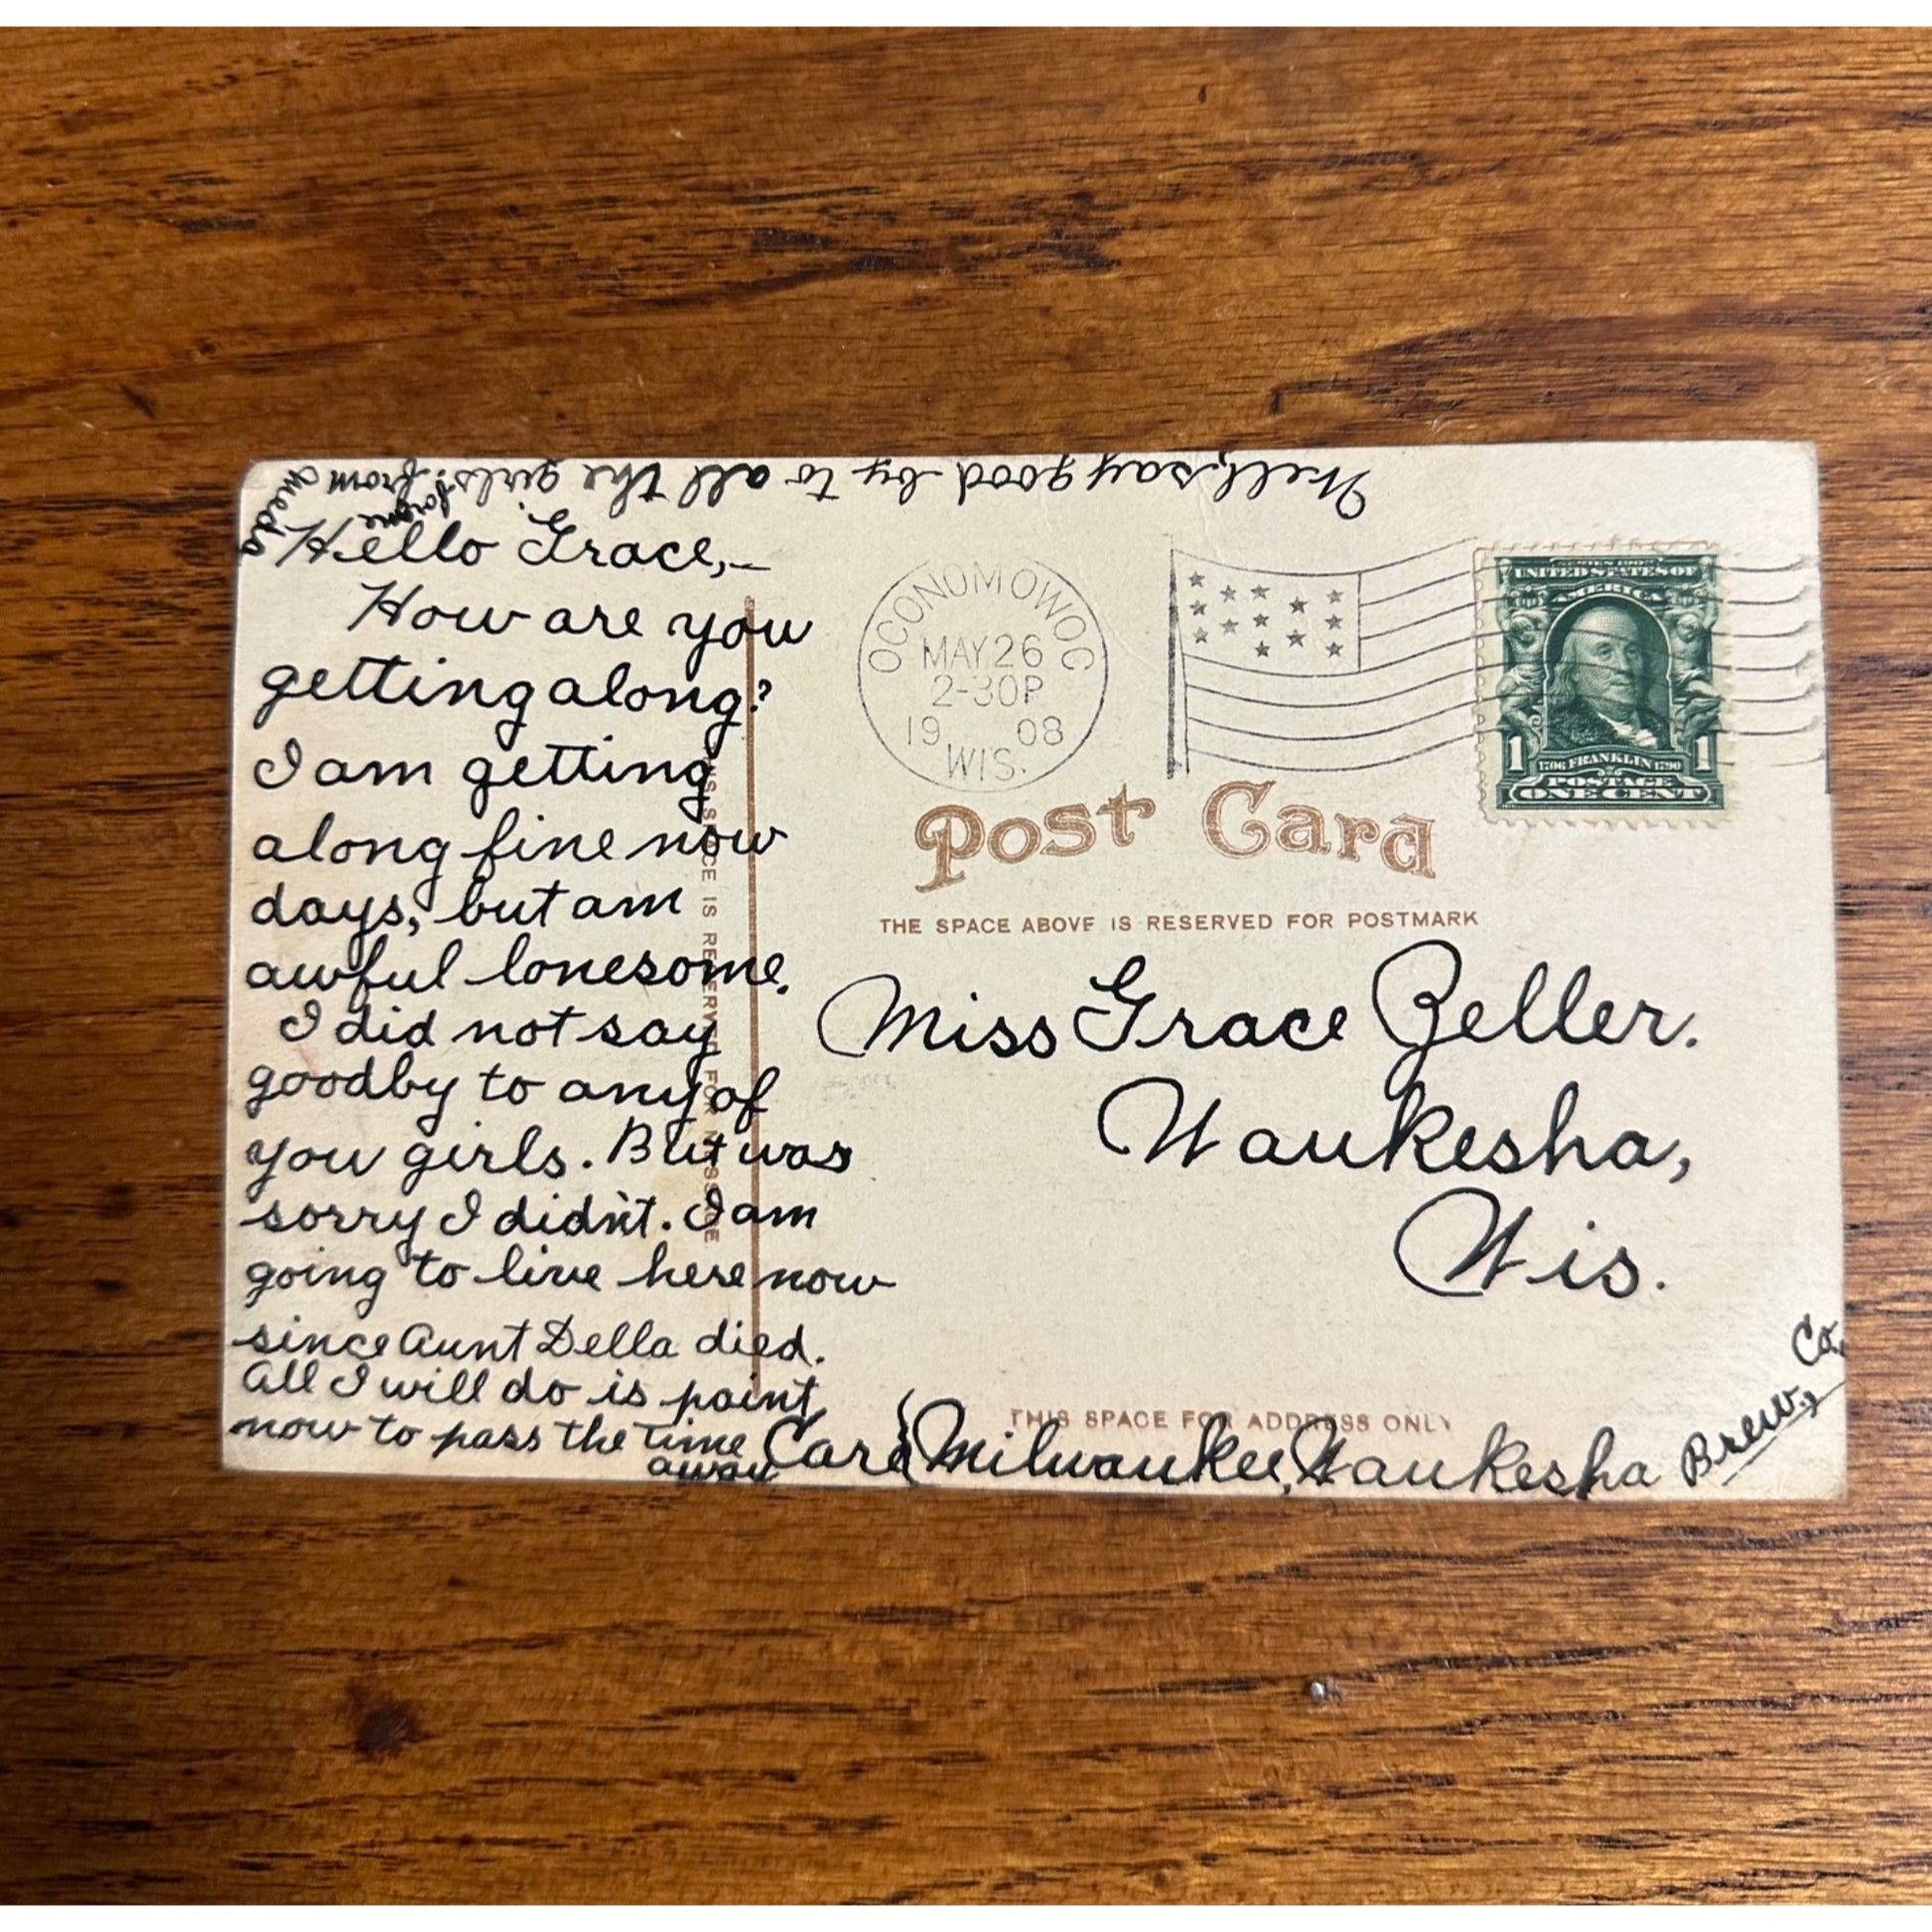 Hello Grace,—
How are you
getting along?
I am getting
along fine now
days, but am
awful lonesome.
I did not say
goodby to any of
you girls. But was
sorry I didn't. I am
going to live here now
since Aunt Della died.
All I will do is paint
now to pass the time
away
Well, say good-by to all the girls. from
for me
THIS SPACE IS RESERVED FOR MESSAGE
OCONOMOWOC
MAY 26
2-30P
19 08
WIS.
UNITED STATES OF
AMERICA
1 1706 FRANKLIN 1790 1
POSTAGE
ONE CENT
Post Card
THE SPACE ABOVE IS RESERVED FOR POSTMARK
Miss Grace Zeller.
Waukesha,
Wis.
THIS SPACE FOR ADDRESS ONLY
Care Milwaukee, Waukesha Brew., Co.